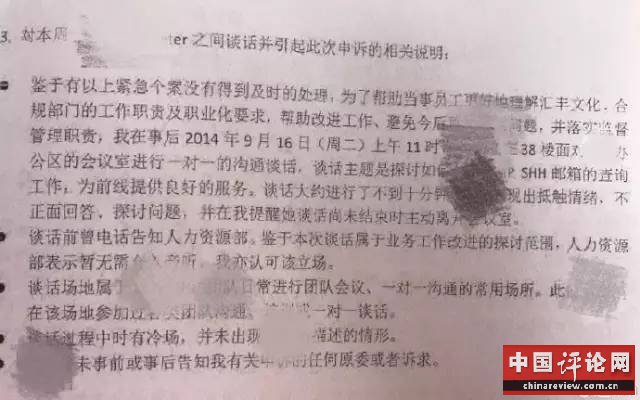 3. 对本周 ter 之间谈话并引起此次申诉的相关说明:
鉴于有以上紧急个案没有得到及时的处理，为了帮助当事员工更好地理解汇丰文化、合
规部门的工作职责及职业化要求，帮助改进工作、避免今后 问题，并落实监督
管理职责，我在事后 2014 年 9 月 16 日（周二）上午 11 时 38 楼面 办
公区的会议室进行一对一的沟通谈话，谈话主题是探讨如 SHH 邮箱的查询
工作，为前线提供良好的服务。谈话大约进行了不到十分钟 现出抵触情绪、不
正面回答、探讨问题，并在我提醒她谈话尚未结束时主动离开会议室。
谈话前曾电话告知人力资源部。鉴于本次谈话属于业务工作改进的探讨范围，人力资源
部表示暂无需 ，我亦认可该立场。
谈话场地属于 团队日常进行团队会议、一对一沟通的常用场所。此
在该场地参加过 团队沟通、 一对一谈话。
谈话过程中时有冷场，并未出现 描述的情形。
未事前或事后告知我有关申诉的任何原委或者诉求。
中国评论网
chinareview.com.cn